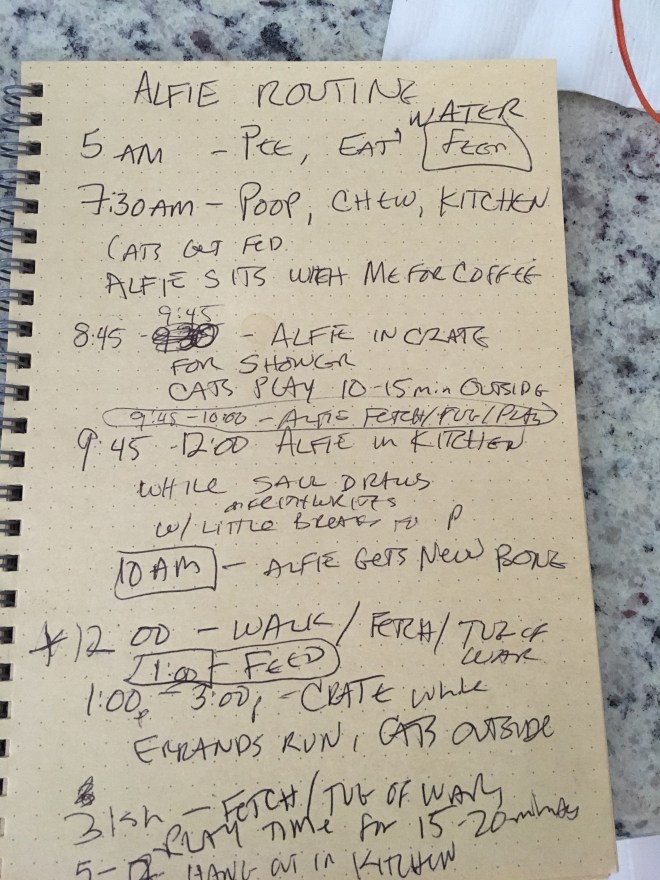 ALFIE ROUTINE
WATER
5 AM - PEE, EAT, FEED
7:30 AM - POOP, CHEW, KITCHEN
CATS GET FED
ALFIE SITS WITH ME FOR COFFEE
9:45
8:45 - - ALFIE IN CRATE
FOR SHOWER
CATS PLAY 10-15 min OUTSIDE
9:45 - 10:00 - ALFIE FETCH/TUG/PLAY
9:45 - 12:00 ALFIE IN KITCHEN
WHILE DRAWS
WRITES
W/ LITTLE BREAK TO P
10 AM - ALFIE GETS NEW BONE
12:00 - WALK / FETCH / TUG OF
WAR
1:00 - FEED
1:00p - 3:00p - CRATE while
ERRANDS RUN, CATS OUTSIDE
3ish - FETCH/TUG OF WAR,
PLAY TIME for 15-20 minutes
5- HANG OUT IN KITCHEN